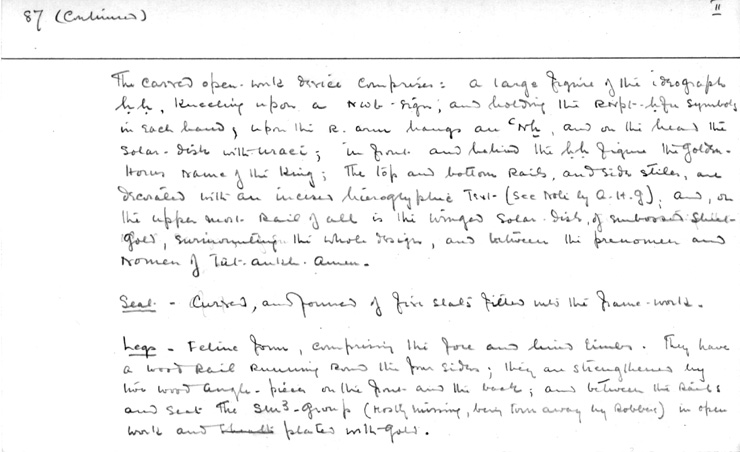 87 (Continued)
II
The carved open-work device comprises: a large figure of the ideograph
ḥḥ, kneeling upon a Nwb-sign, and holding the Rnpt-ḥfn symbols
in each hand; upon the R. arm hangs an ꜥnḫ, and on the head the
Solar-disk with uraei; in front and behind the ḥḥ figure the Golden-
Horus Name of the King; The top and bottom Rails, and side stiles, are
decorated with an incised hieroglyphic Text (see Note by A.H.G); and, on
the upper most Rail of all is the winged Solar-Disk, of embossed sheet-
gold, surmounting the whole design, and between the prenomen and
Nomen of Tût-ankh-Amen.
Seat - Curved, and formed of five slats fitted into the frame-work.
Legs - Feline form, comprising the fore and hind limbs. They have
a wood Rail Running Round the four sides; they are strengthened by
two wood angle-pieces on the front and the back; and between the Rails
and Seat The Sm3-group (mostly missing, being torn away by Robbers) in open
work and plated with gold.